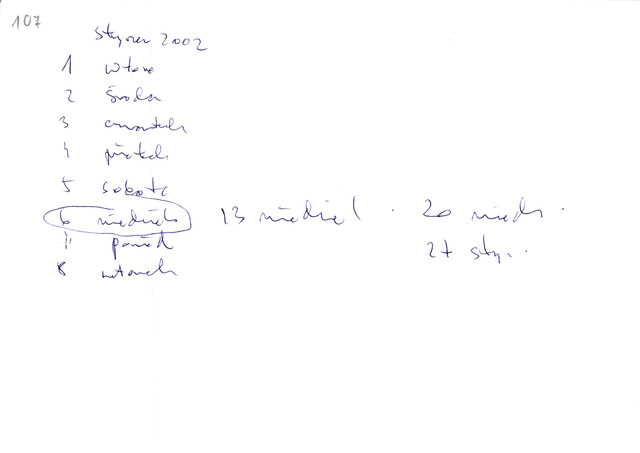 107
styczeń 2002
1 wtorek
2 środa
3 czwartek
4 piątek
5 sobota
6 niedziela 13 niedziel. 20 niedz.
7 ponied 27 stycz.
8 wtorek